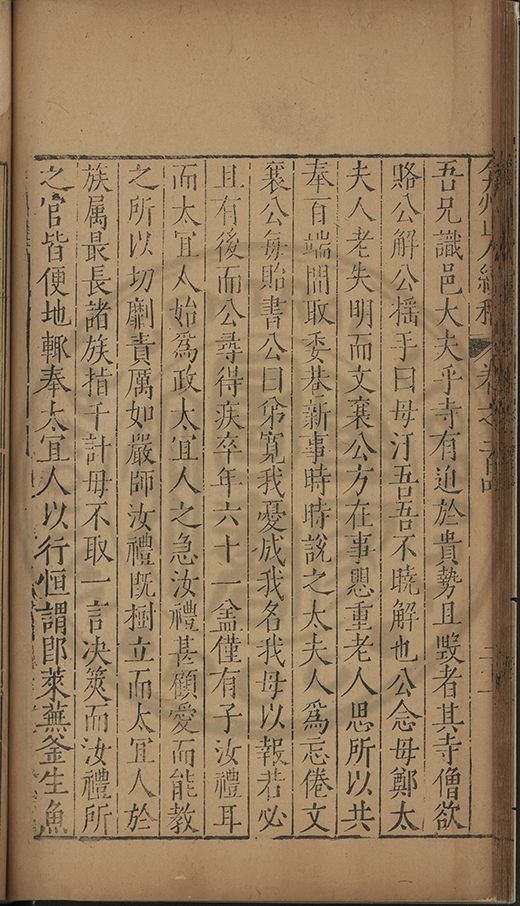 弇州山人續稿 卷之一百
吾兄識邑大夫乎寺有迫於貴勢且毀者其寺僧欲
賂公解公搖手曰毋汙吾吾不曉解也公念母鄭太
夫人老失明而文襄公方在事思重老人思所以共
奉百端間取委巷新事時時說之太夫人爲忘倦文
襄公每貽書公曰弟寬我憂成我名我母以報若必
且有後而公尋得疾卒年六十一盒僅有子汝禮耳
而太宜人始爲政太宜人之急汝禮甚顧愛而能教
之所以切劘責厲如嚴師汝禮旣樹立而太宜人於
族属最長諸族指千計毋不取一言決筴而汝禮所
之官皆便地輒奉太宜人以行恒謂郎萊蕪釜生魚